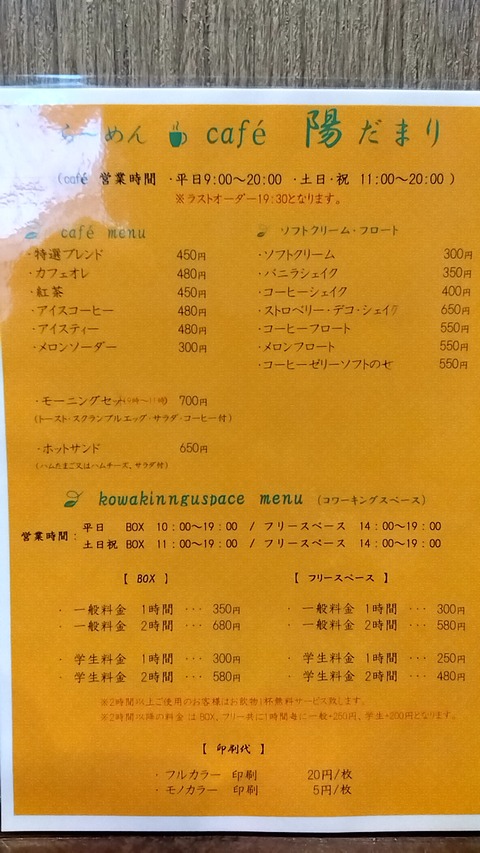 らーめん café 陽だまり
(café 営業時間 ・平日9:00～20:00 ・土日・祝 11:00～20:00 )
※ラストオーダー19:30となります。
café menu
・特選ブレンド 450円
・カフェオレ 480円
・紅茶 450円
・アイスコーヒー 480円
・アイスティー 480円
・メロンソーダー 300円
・モーニングセット(9時～11時) 700円
(トースト・スクランブルエッグ・サラダ・コーヒー付)
・ホットサンド 650円
(ハムたまご又はハムチーズ、サラダ付)
ソフトクリーム・フロート
・ソフトクリーム 300円
・バニラシェイク 350円
・コーヒーシェイク 400円
・ストロベリー・デコ・シェイク 650円
・コーヒーフロート 550円
・メロンフロート 550円
・コーヒーゼリーソフトのせ 550円
kowakinnguspace menu (コワーキングスペース)
営業時間: 平日 BOX 10:00～19:00 / フリースペース 14:00～19:00
土日祝 BOX 11:00～19:00 / フリースペース 14:00～19:00
【 BOX 】
・ 一般料金 1時間 ・・・ 350円
・ 一般料金 2時間 ・・・ 680円
・ 学生料金 1時間 ・・・ 300円
・ 学生料金 2時間 ・・・ 580円
【 フリースペース 】
・ 一般料金 1時間 ・・・ 300円
・ 一般料金 2時間 ・・・ 580円
・ 学生料金 1時間 ・・・ 250円
・ 学生料金 2時間 ・・・ 480円
※2時間以上ご使用のお客様はお飲物1杯無料サービス致します。
※2時間以降の料金は BOX、フリー共に1時間毎に一般+250円、学生+200円となります。
【 印刷代 】
・ フルカラー 印刷 20円/枚
・ モノカラー 印刷 5円/枚